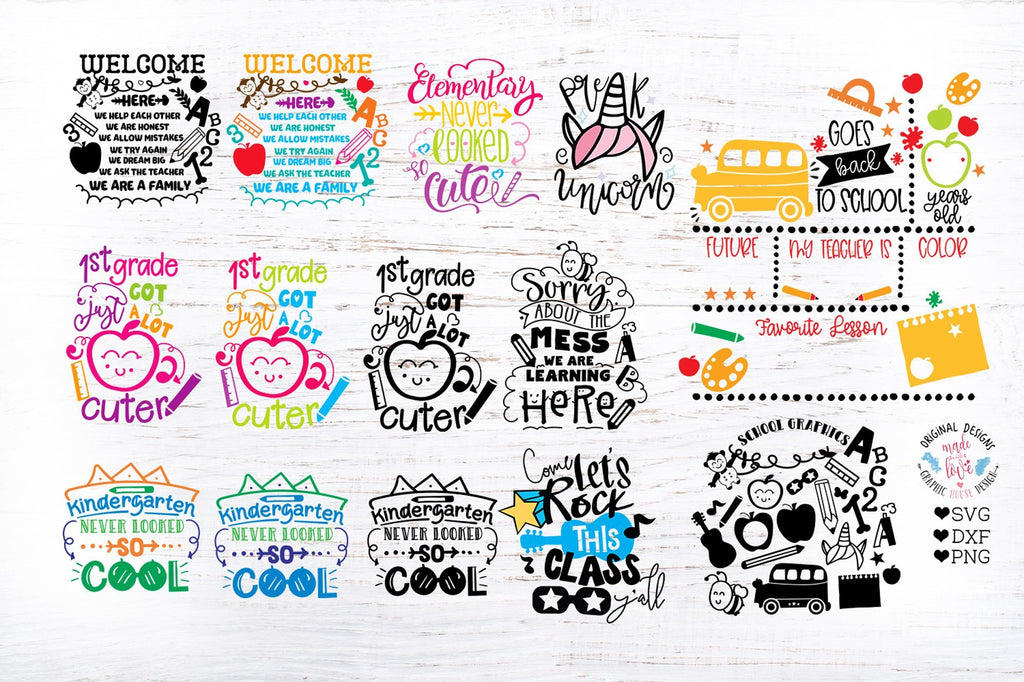 WELCOME
HERE
WE HELP EACH OTHER
WE ARE HONEST
WE ALLOW MISTAKES
WE TRY AGAIN
WE DREAM BIG
WE ASK THE TEACHER
WE ARE A FAMILY
A
B
C
1
2
3
WELCOME
HERE
WE HELP EACH OTHER
WE ARE HONEST
WE ALLOW MISTAKES
WE TRY AGAIN
WE DREAM BIG
WE ASK THE TEACHER
WE ARE A FAMILY
A
B
C
1
2
3
Elementary
Never
Looked
so
cute
PreK
Unicorn
GOES
back
TO SCHOOL
years
old
FUTURE
MY TEACHER IS
COLOR
Favorite Lesson
1st grade
GOT
just A LOT
cuter
1st grade
GOT
just A LOT
cuter
1st grade
GOT
just A LOT
cuter
Sorry
ABOUT THE
MESS
WE ARE
LEARNING
HERE
A
B
kindergarten
NEVER LOOKED
SO
COOL
kindergarten
NEVER LOOKED
SO
COOL
kindergarten
NEVER LOOKED
SO
COOL
Come
Let's
Rock
THIS
CLASS
y'all
SCHOOL GRAPHICS
A
B
C
1
2
A
ORIGINAL DESIGNS
made with
love
GRAPHIC HOUSE DESIGN
SVG
DXF
PNG